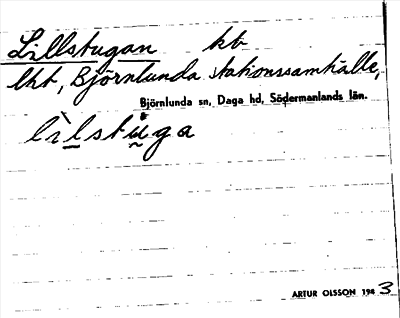 Lillstugan kb
lht, Björnlunda stationssamhälle,
Björnlunda sn, Daga hd, Södermanlands län.
lìlstu̇ga
ARTUR OLSSON 1983